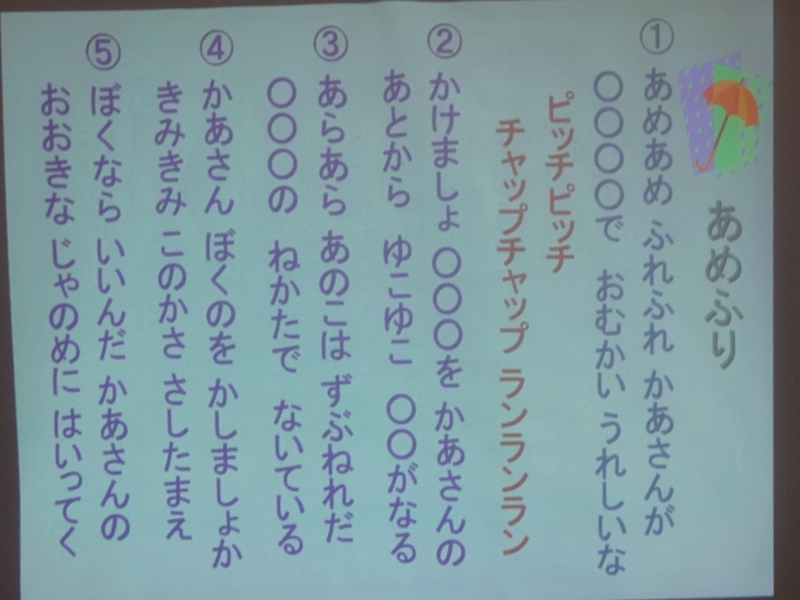 あめふり
① あめあめ ふれふれ かあさんが
〇〇〇〇で おむかい うれしいな
ピッチピッチ
チャップチャップ ランランラン
② かけましょ 〇〇〇を かあさんの
あとから ゆこゆこ 〇〇がなる
③ あらあら あのこは ずぶねれだ
〇〇〇の ねかたで ないている
④ かあさん ぼくのを かしましょか
きみきみ このかさ さしたまえ
⑤ ぼくなら いいんだ かあさんの
おおきな じゃのめに はいってく